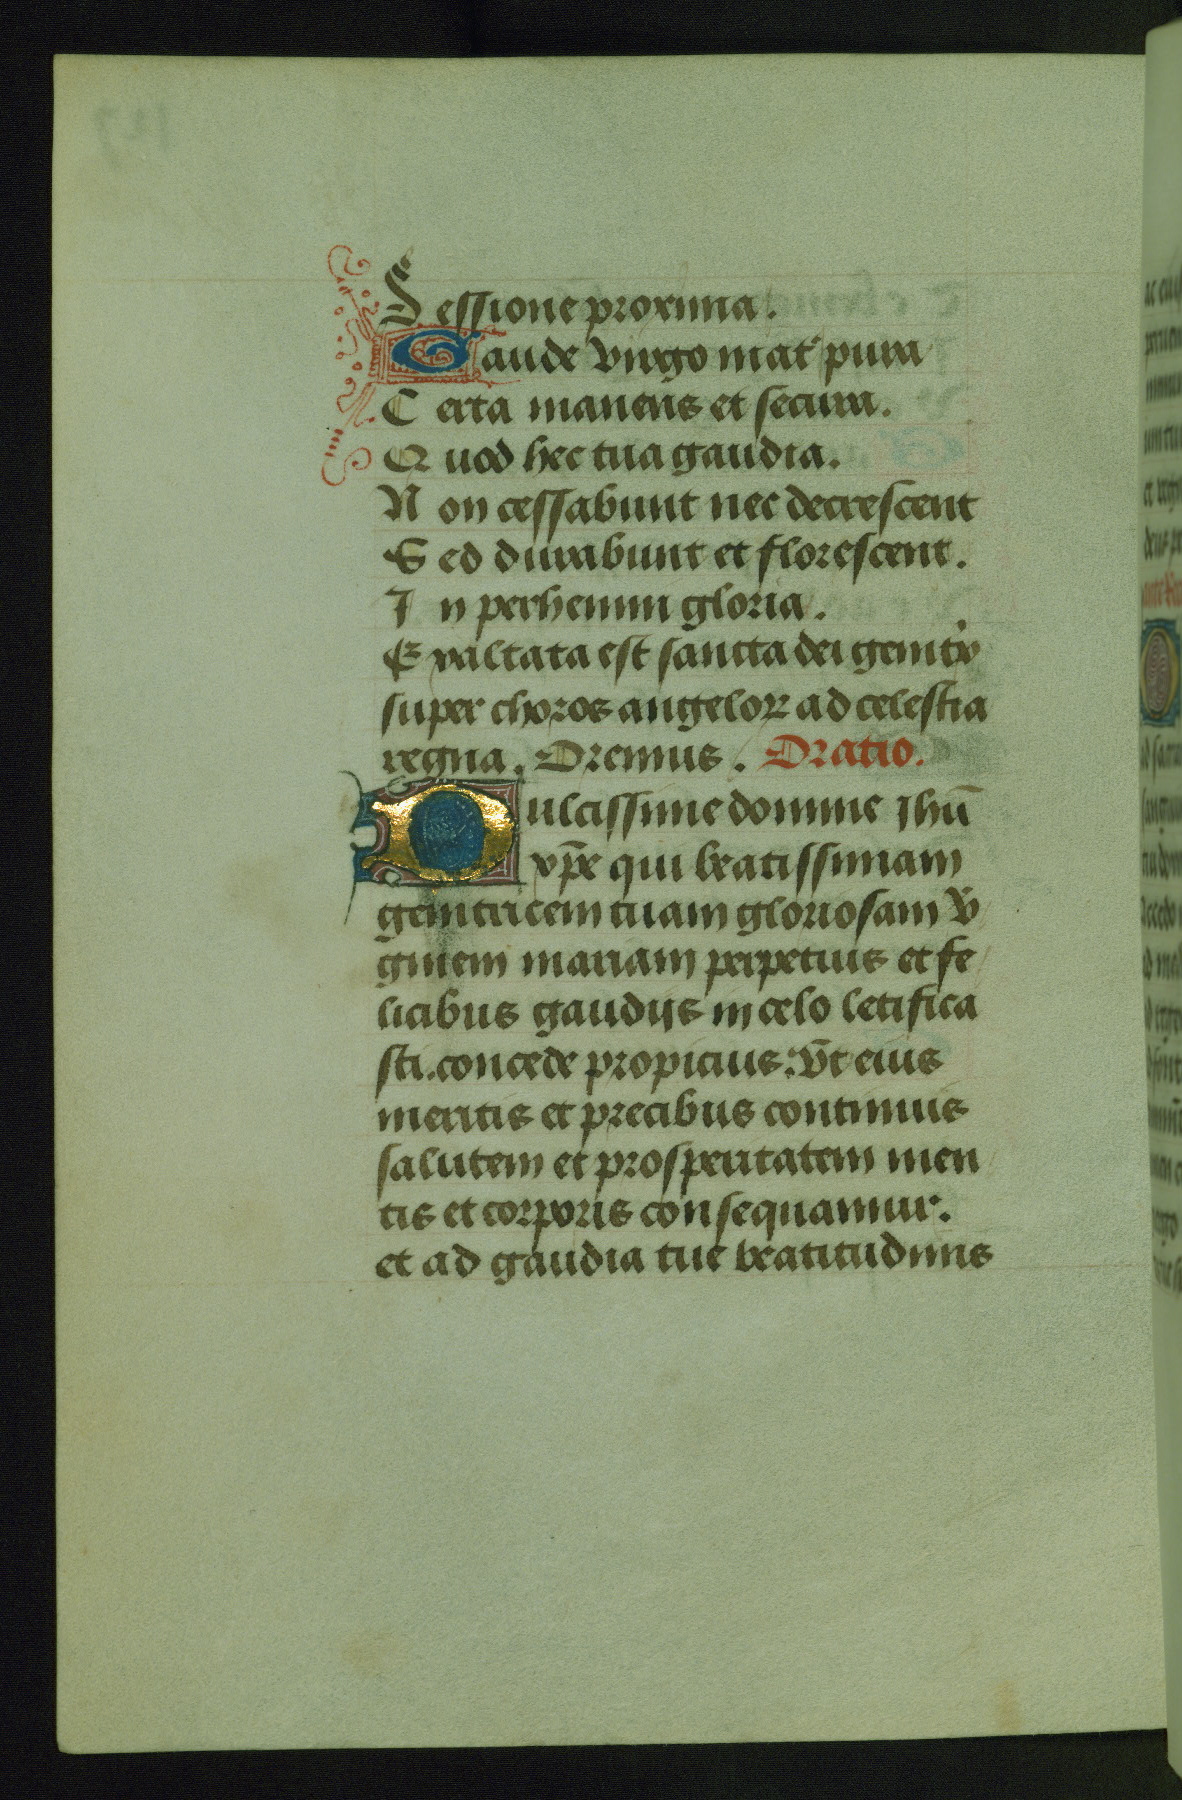 Sessione proxima.
Gaude virgo mat᷑ pura
Certa manens et secura.
Quod hec tua gaudia.
Non cessabunt nec decrescent
Sed durabunt et florescent.
In perhennii gloria.
Exaltata est sancta dei genit͛x
super choros angeloꝝ ad celestia
regna. Oremus. Oratio.
Dulcissime domine Jhū
xp̄e qui beatissimam
genitricem tuam gloriosam v̄
ginem mariam perpetuis et fe
licibus gaudijs in celo letifica
sti. concede propicius: vt eius
meritis et precibus continuis
salutem et prosperitatem men
tis et corporis consequamur.
et ad gaudia tue beatitudinis